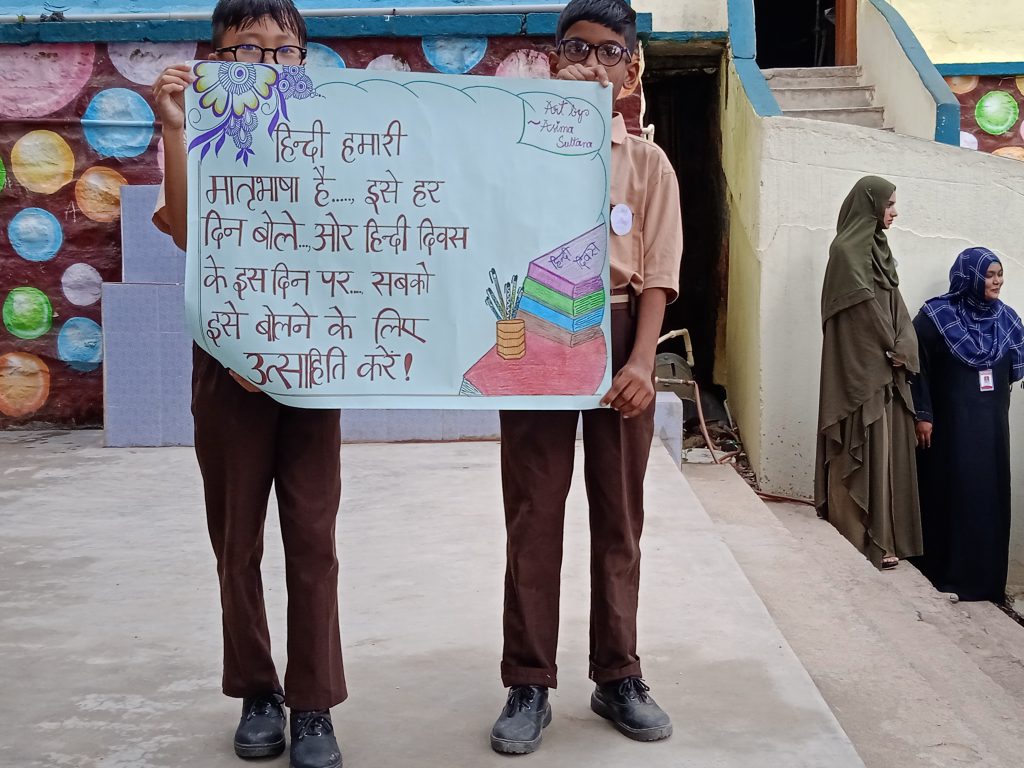 Art by:
~Asima
Sultana
हिन्दी हमारी
मातृभाषा है....., इसे हर
दिन बोले..., ओर हिन्दी दिवस
के इस दिन पर...., सबको
इसे बोलने के लिए
उत्साहिति करें!
हिन्दी दिवस